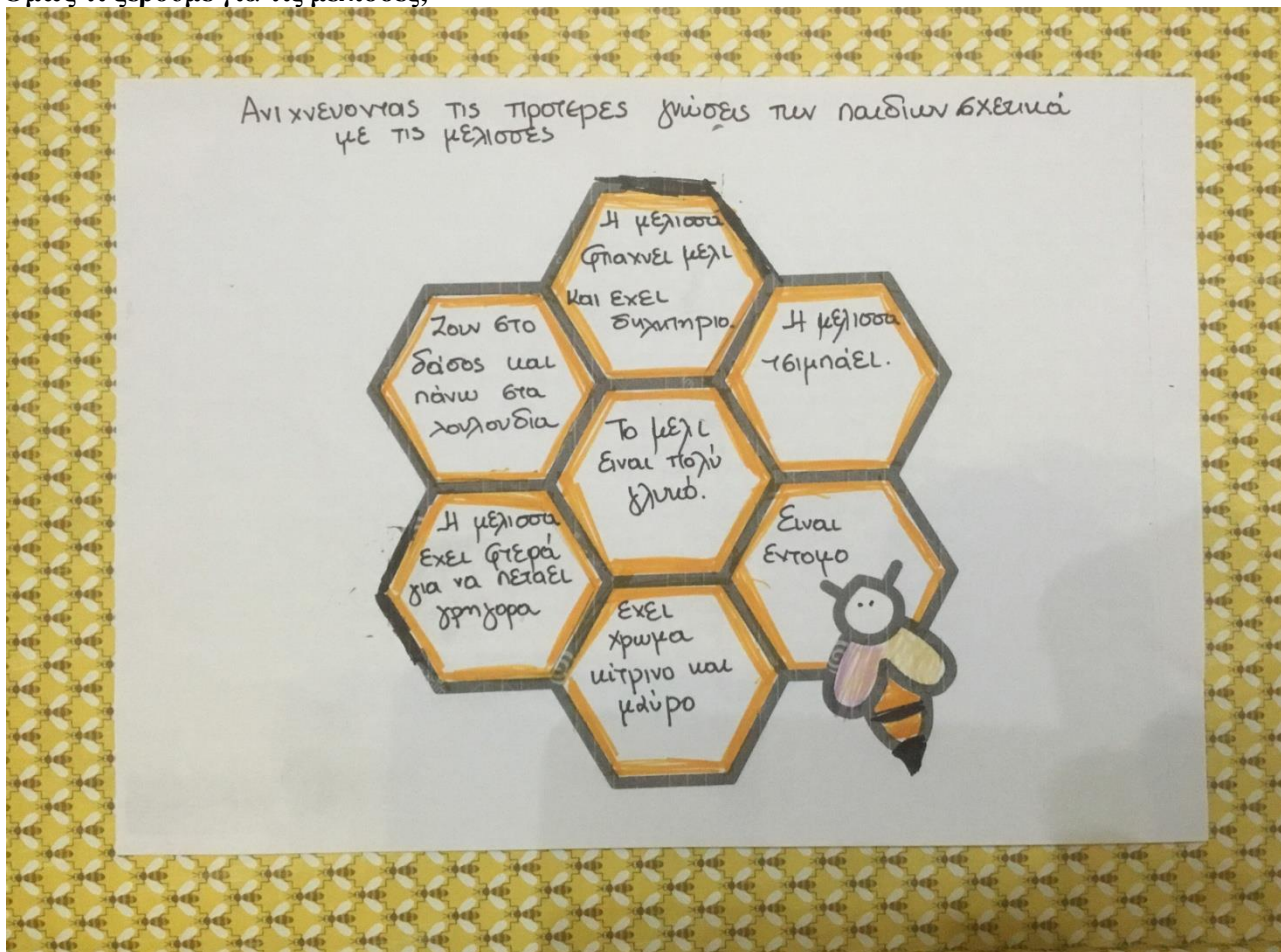 Όμως τι ξέρουμε για τις μέλισσες;
Ανιχνευοντας τις προτερες γνώσεις των παιδιων σχετικά
με τις μέλισσες
Η μέλισσα
φτιαχνει μελι
και εχει
δηχτηριο.
Ζουν στο
δάσος και
πάνω στα
λουλουδια
Η μέλισσα
τσιμπάει.
Το μελι
ειναι πολύ
γλυκό.
Η μέλισσα
εχει φτερά
για να πεταει
γρηγορα
Ειναι
εντομο
εχει
χρωμα
κίτρινο και
μαύρο